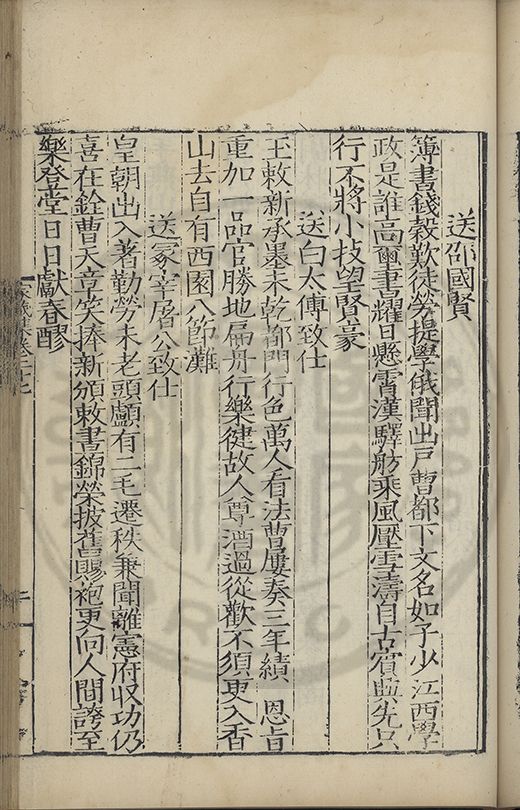 送邵國賢
簿書錢穀歎徒勞提學俄聞出戶曹都下文名如子少江西學
政是誰高璽書耀日懸霄漢驛舫乘風壓雪濤自古賓興先只
行不將小技望賢豪
送白太傅致仕
玉敕新承墨未乾都門行色萬人看法曹屢奏三年績 恩旨
重加一品官勝地扁舟行樂健故人尊酒過從歡不須更入香
山去自有西園八節灘
送冢宰屠公致仕
皇朝出入著勤勞未老頭顱有二毛遷秩兼聞離憲府収功仍
喜在銓曹天章笑捧新頒敕書錦榮披舊賜袍更向人間誇至
樂登堂日日獻春醪